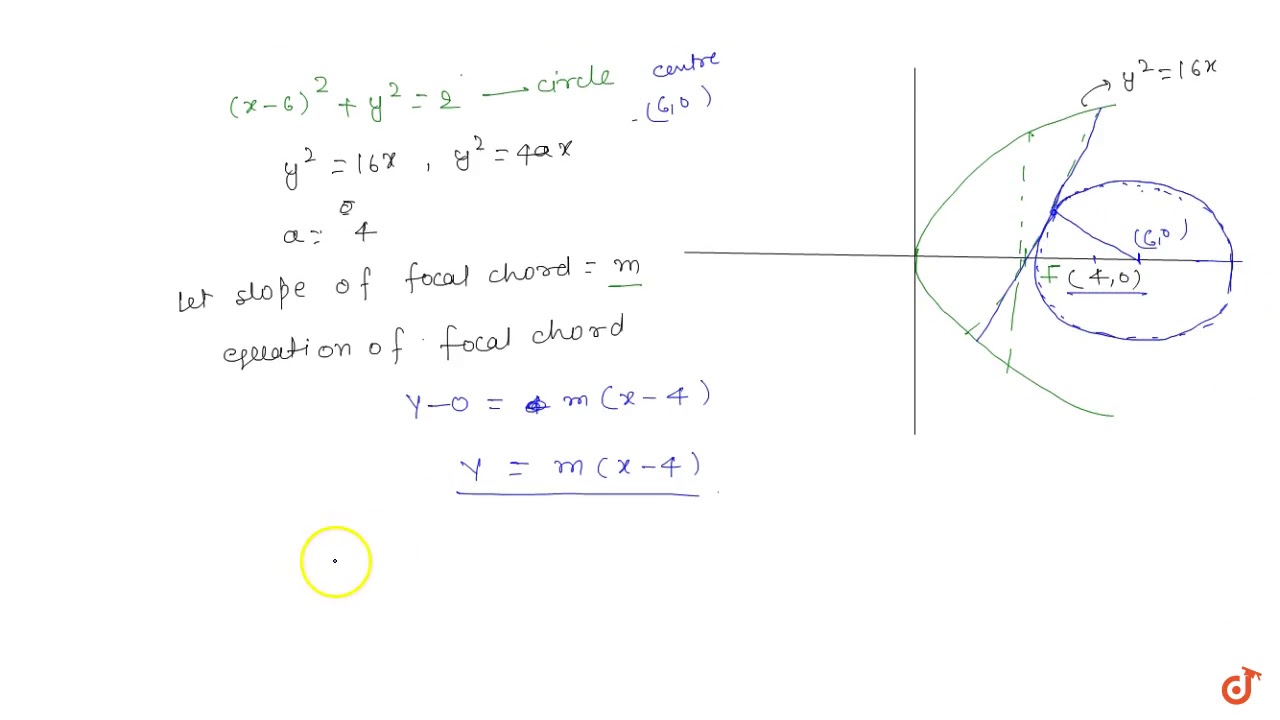 (x-6)² + y² = 2 → circle
centre
(6,0)
y² = 16x , y² = 4ax
a = 4
Let slope of focal chord = m
equation of focal chord
Y-0 = m(x-4)
Y = m(x-4)
y² = 16x
(6,0)
F (4,0)